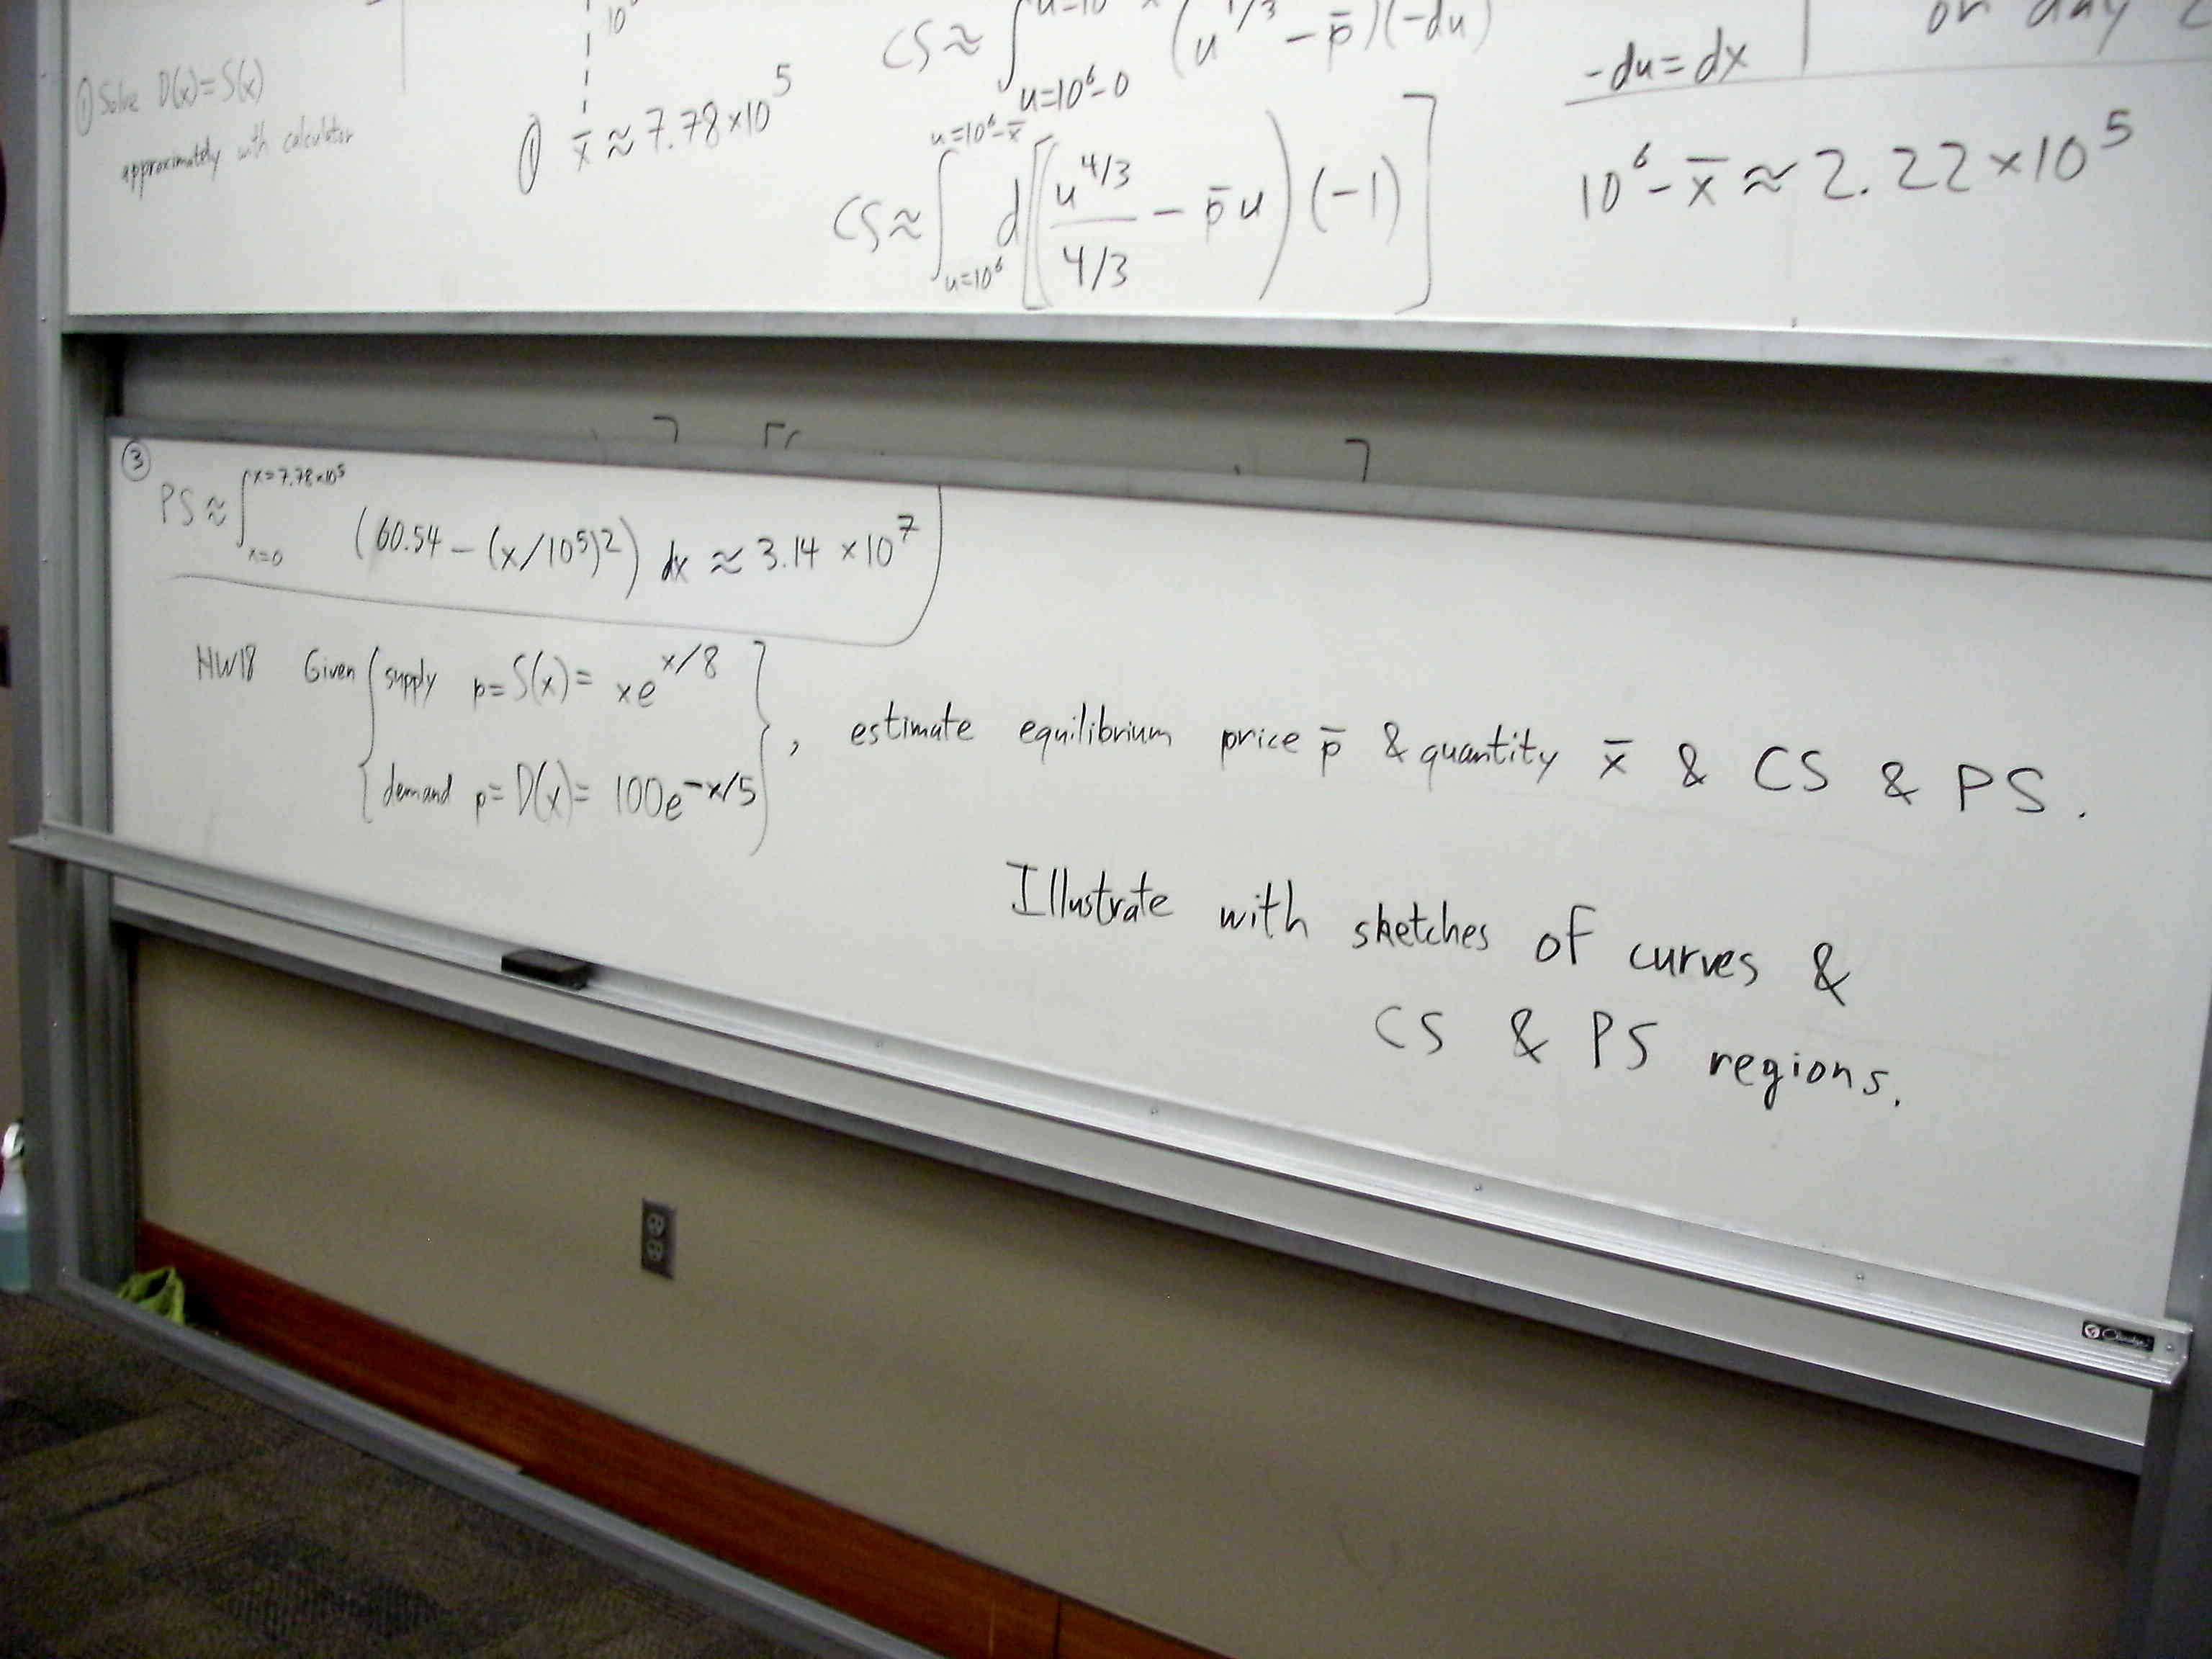 ① Solve D(x)=S(x)
approximately with calculator
① x̄ ≈ 7.78×10⁵
CS ≈ ∫ (u^1/3 − p̄)(−du)
u=10⁶−0
u=10⁶−x̄
CS ≈ ∫ d[(u^4/3 / 4/3 − p̄u)(−1)]
u=10⁶
−du=dx
on day 2
10⁶−x̄ ≈ 2.22×10⁵
③
PS ≈ ∫_{x=0}^{x=7.78×10⁵} (60.54 − (x/10⁵)²) dx ≈ 3.14 ×10⁷
HW18 Given { supply p=S(x)= xe^x/8
demand p=D(x)= 100e^−x/5 } , estimate equilibrium price p̄ & quantity x̄ & CS & PS.
Illustrate with sketches of curves &
CS & PS regions.